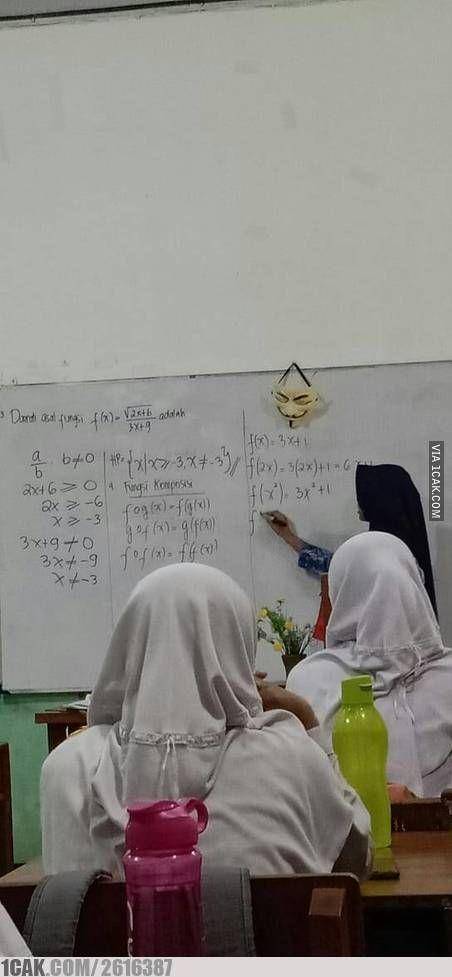 3 Daerah asal fungsi f(x) = √2x+6 / 3x+9 adalah
a/b . b≠0
2x+6 ⩾ 0
2x ⩾ -6
x ⩾ -3
3x+9 ≠ 0
3x ≠ -9
x ≠ -3
HP = {x | x ⩾ -3, x ≠ -3}
4. Fungsi Komposisi
fog(x) = f(g(x))
gof(x) = g(f(x))
fof(x) = f(f(x))
f(x) = 3x+1
f(2x) = 3(2x)+1 = 6x+1
f(x²) = 3x²+1
f
VIA 1CAK.COM
1CAK.COM/2616387